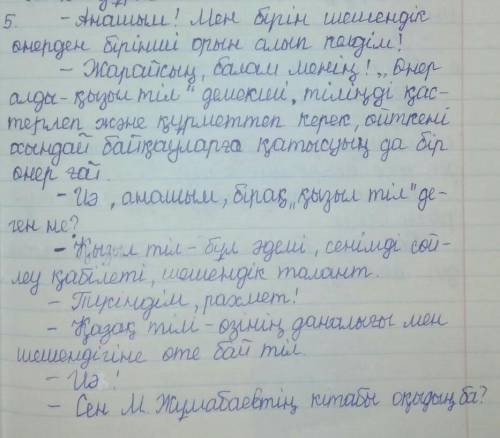 5. - Анашым! Мен бірін шешендік
өнерден бірінші орын алып келдім!
- Жарайсың, балам менің! „Өнер
алды-қызыл тіл" демекші, тіліңді қас-
терлеп және құрметтеп керек, өйткені
осындай байқауларға қатысуың да бір
өнер ғой.
- Иә, анашым, бірақ „қызыл тіл" де-
ген не?
- Қызыл тіл - бұл әдемі, сенімді сөй-
леу қабілеті, шешендік талант.
- Түсіндім, рахмет!
- Қазақ тілі - өзінің даналығы мен
шешендігіне өте бай тіл.
- Иә!
- Сен М. Жұмабаевтің кітабы оқыдың ба?